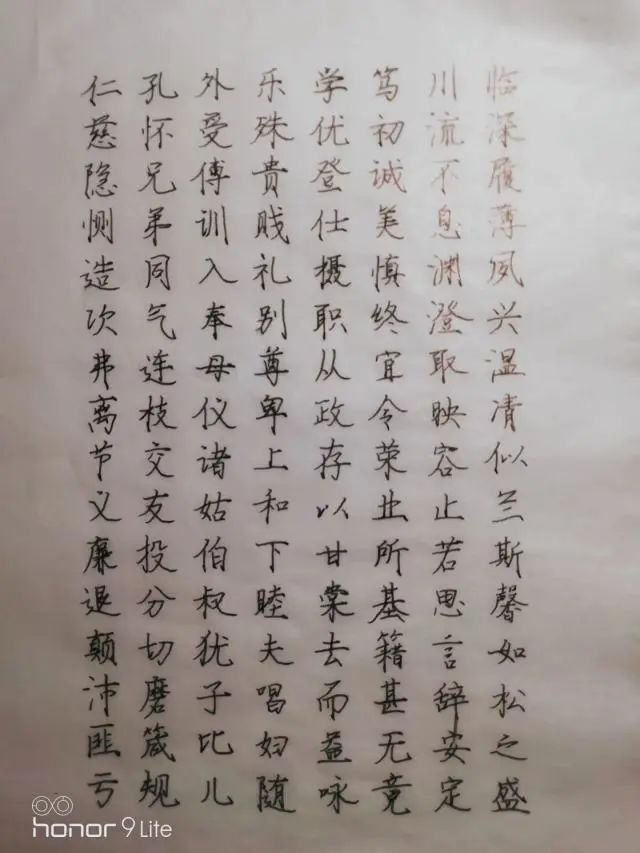 临深履薄夙兴温清似兰斯馨如松之盛
川流不息渊澄取映容止若思言辞安定
笃初诚美慎终宜令荣业所基籍甚无竟
学优登仕摄职从政存以甘棠去而益咏
乐殊贵贱礼别尊卑上和下睦夫唱妇随
外受傅训入奉母仪诸姑伯叔犹子比儿
孔怀兄弟同气连枝交友投分切磨箴规
仁慈隐恻造次弗离节义廉退颠沛匪亏
honor 9 Lite